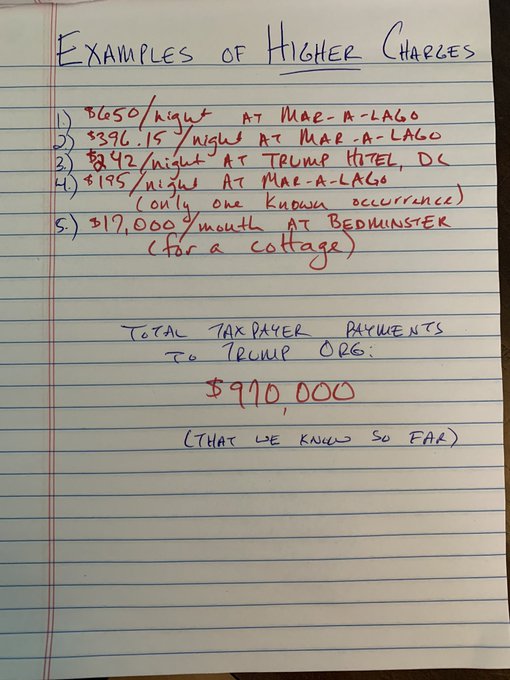 EXAMPLES OF HIGHER CHARGES
1.) $650/night AT MAR-A-LAGO
2.) $396.15/night AT MAR-A-LAGO
3.) $242/night AT TRUMP HOTEL, DC
4.) $195/night AT MAR-A-LAGO
(only one known occurrence)
5.) $17,000/month AT BEDMINSTER
(for a cottage)
TOTAL TAXPAYER PAYMENTS
TO TRUMP ORG:
$970,000
(THAT WE KNOW SO FAR)